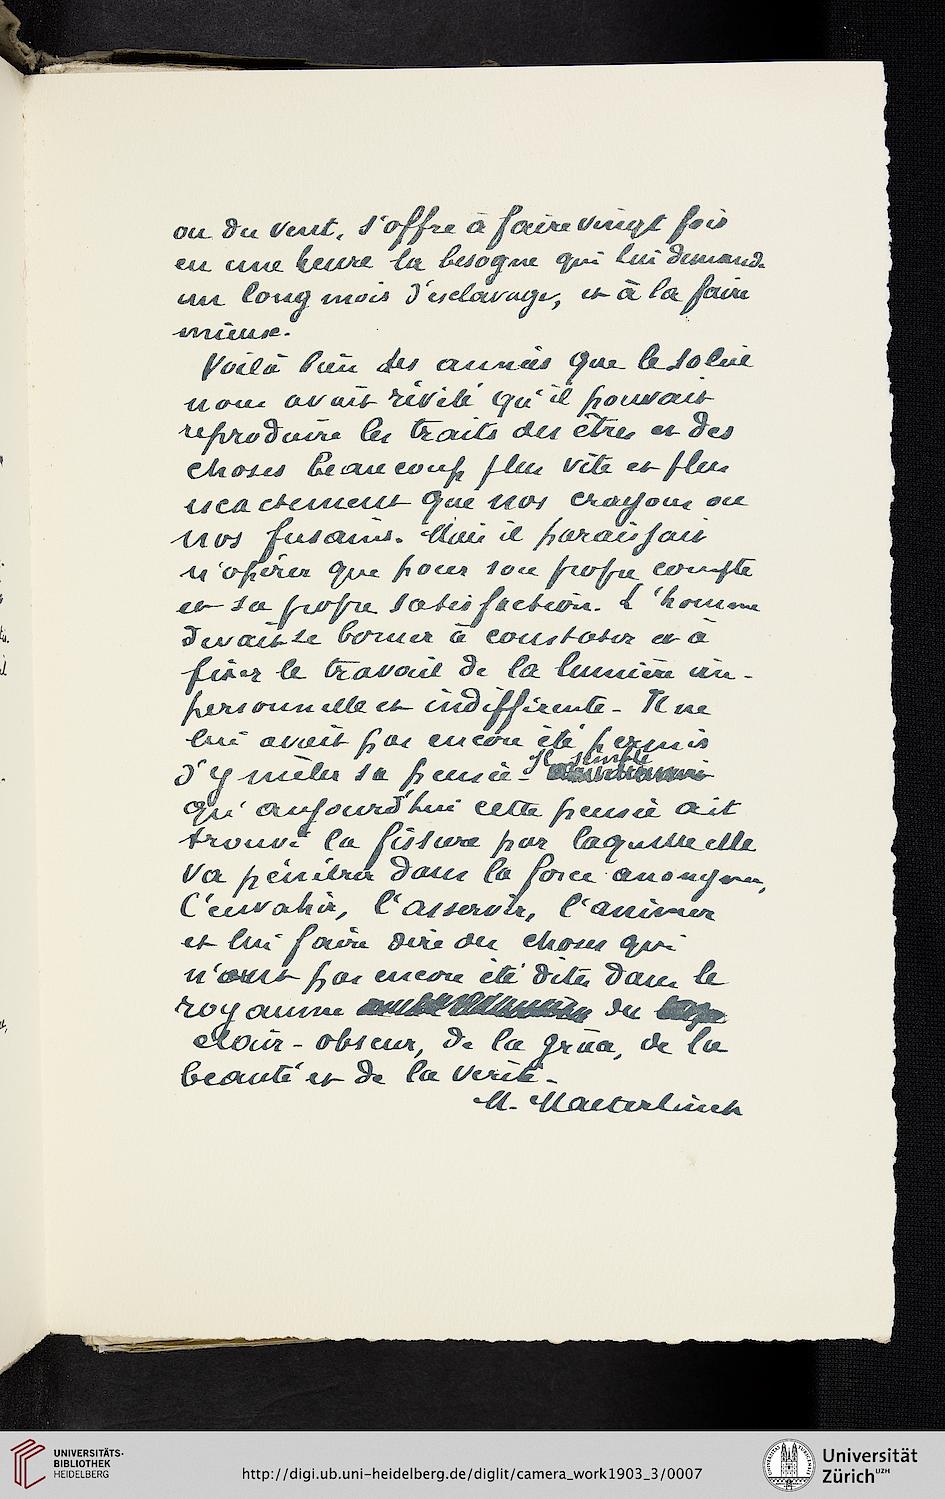 ou du vent, s'offre à faire vingt fois
en une heure la besogne qui lui demande
un long mois d'esclavage, et à la faire
mieux.
Voilà bien des années que le soleil
nous avait révélé qu'il pouvait
reproduire les traits des êtres et des
choses beaucoup plus vite et plus
exactement que nos crayons ou
nos fusains. Mais il paraissait
n'opérer que pour son propre compte
et sa propre satisfaction. L'homme
devait se borner à constater et à
fixer le travail de la lumière im-
personnelle et indifférente. Il ne
lui avait pas encore été permis
d'y mêler sa pensée. Il semble
qu'aujourd'hui cette pensée ait
trouvé la fissure par laquelle elle
va pénétrer dans la force anonyme,
l'envahir, l'asservir, l'animer
et lui faire dire des choses qui
n'ont pas encore été dites dans le
royaume du
clair-obscur, de la grâce, de la
beauté et de la vérité.
M. Maeterlinck
UNIVERSITÄTS-
BIBLIOTHEK
HEIDELBERG
http://digi.ub.uni-heidelberg.de/diglit/camera_work1903_3/0007
Universität
Zürich UZH